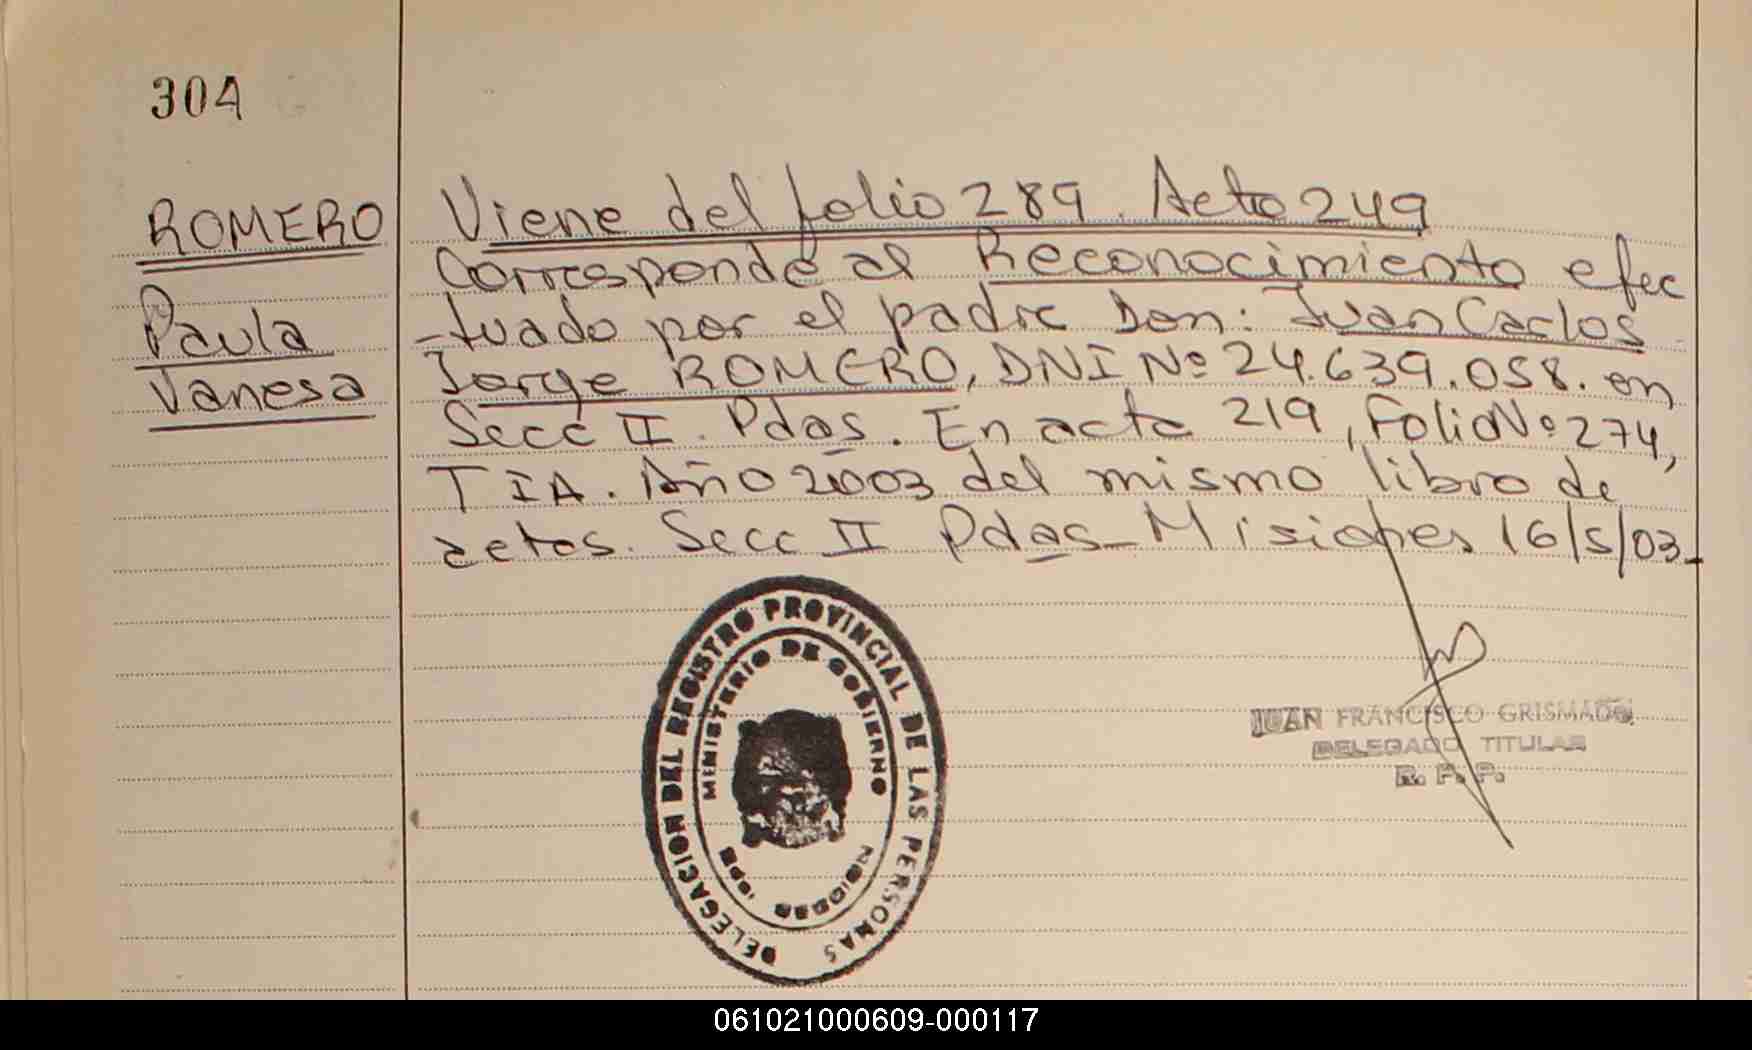 304
ROMERO
Paula
Vanesa
Viene del folio 289. Acta 249
Corresponde al Reconocimiento efec
-tuado por el padre Don: Juan Carlos
Jorge ROMERO, DNI Nº 24.639.058. en
Secc II. Pdas. En acta 219, Folio Nº 274,
T IA. Año 2003 del mismo libro de
actas. Secc II Pdas - Misiones 16/5/03-
DELEGACION DEL REGISTRO PROVINCIAL DE LAS PERSONAS
MINISTERIO DE GOBIERNO
JUAN FRANCISCO GRISMADO
DELEGADO TITULAR
R. P. P.
061021000609-000117